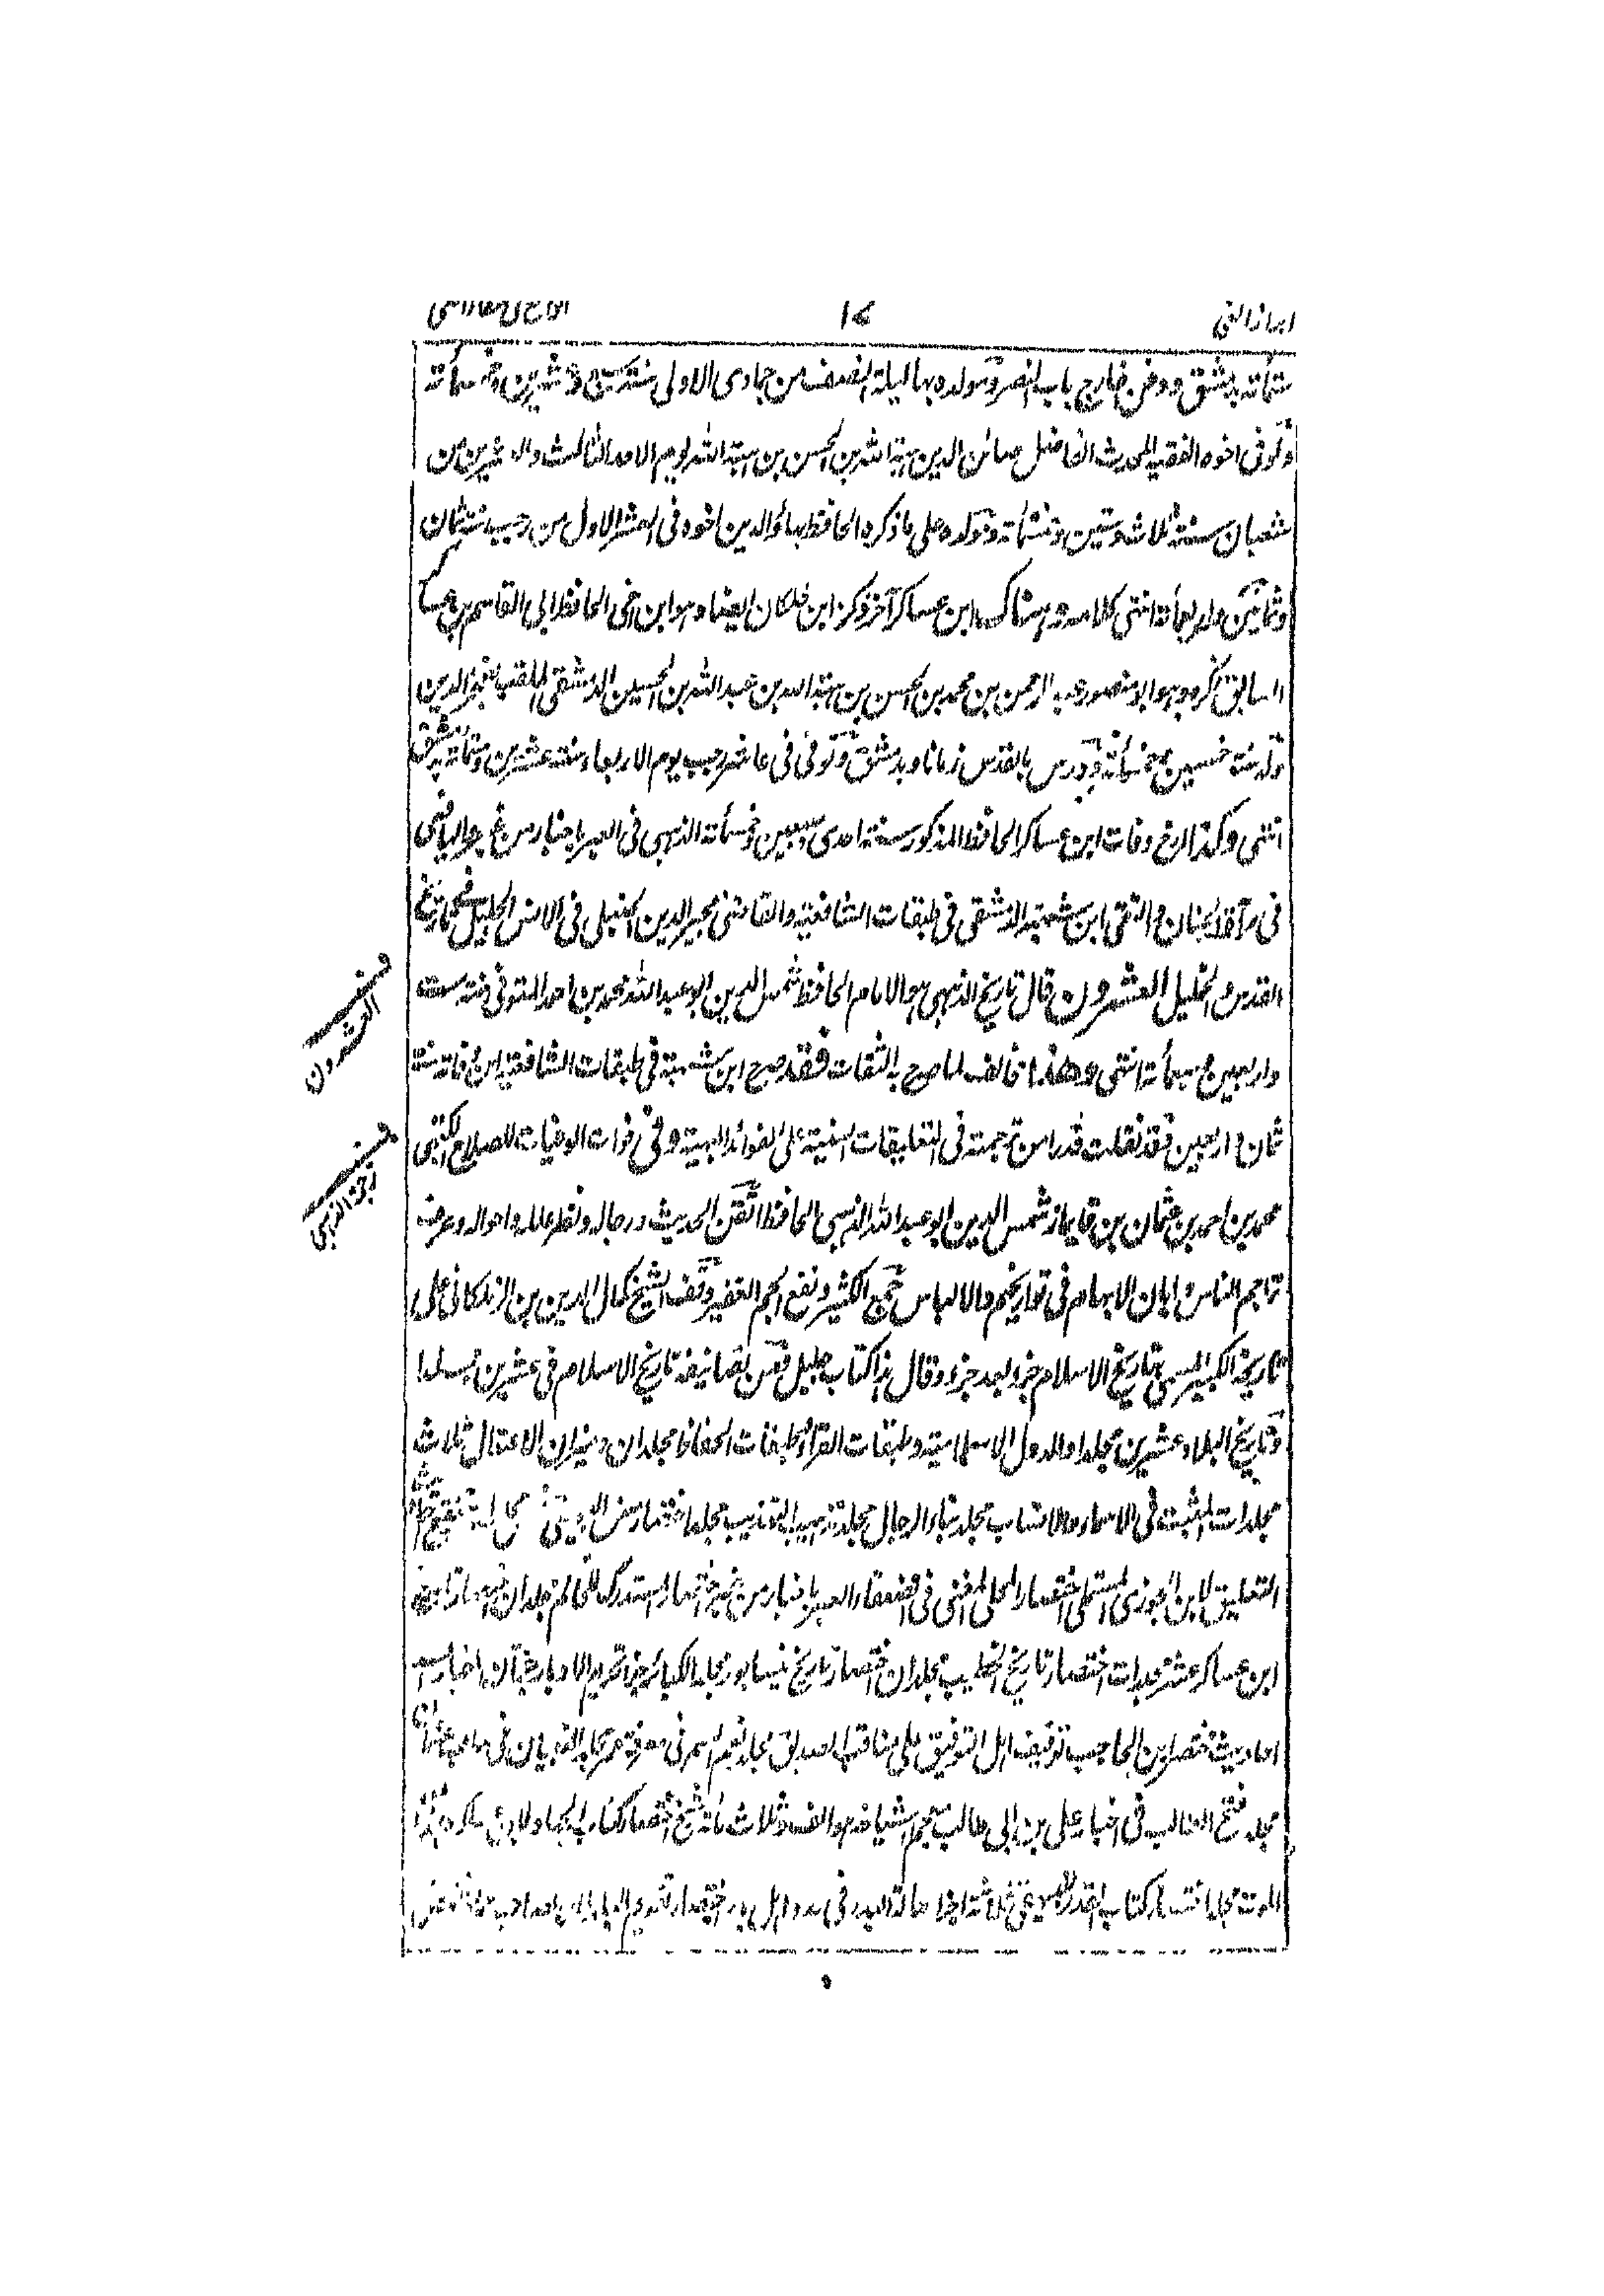 ابراز الغی
ستمائة بدمشق ودفن خارج باب النصر ومولده بها ليلة النصف من جمادى الاولى سنة وعشرين وخمسمائة
وتوفى اخوه الفقيه المحدث الفاضل صائن الدين هبة الله بن الحسن بن هبة الله يوم الاحد الثالث والعشرين من
شعبان سنة ثلاث وستين وخمسمائة ومولده على ما ذكره الحافظ بهاء الدين اخوه فى العشر الاول من رجب سنة ثمان
وثمانين واربعمائة انتهى كلامه وهناك ابن عساكر آخر ذكره ابن خلكان ايضا وهو ابن اخى الحافظ ابى القاسم بن عساكر
السابق ذكره وهو ابو منصور عبد الرحمن بن محمد بن الحسن بن هبة الله بن عبد الله بن الحسين الدمشقى الملقب بفخر الدين
ولد سنة خمسين وخمسمائة ودرس بالقدس زمانا وبدمشق وتوفى فى عاشر رجب يوم الاربعاء سنة عشرين وستمائة بدمشق
انتهى وكذا ارخ وفات ابن عساكر الحافظ المذكور سنة احدى وسبعين وخمسمائة الذهبى فى العبر باخبار من غبر واليافعى
فى مرآة الجنان والتقى ابن شهبة الدمشقى فى طبقات الشافعية والقاضى مجير الدين الحنبلى فى الانس الجليل فى تاريخ
القدس والخليل العشرون قال تاريخ الذهبى هو الامام الحافظ شمس الدين ابو عبد الله محمد بن احمد المتوفى سنة ست
واربعين وسبعمائة انتهى وهذا مخالف لما صرح به الثقات فقد صرح ابن شهبة فى طبقات الشافعية ان وفاته سنة
ثمان واربعين فقد نقلت قدرا من ترجمته فى التعليقات السنية على الفوائد البهية وفى فوات الوفيات للصلاح الكتبى
محمد بن احمد بن عثمان بن قايماز شمس الدين ابو عبد الله الذهبى الحافظ اتقن الحديث ورجاله ونظر علله واحواله وعرف
تراجم الناس وابان الابهام فى تواريخهم والالباس جمع الكثير ونفع الجم الغفير وقف الشيخ كمال الدين بن الزملكانى على
تاريخه الكبير المسمى بتاريخ الاسلام جزء بعد جزء وقال هذا كتاب جليل فمن تصانيفه تاريخ الاسلام فى عشرين مجلدا
وتاريخ البلاد عشرين مجلدا والدول الاسلامية وطبقات القراء وطبقات الحفاظ مجلدان وميزان الاعتدال ثلاث
مجلدات المثبت فى الاسماء والانساب مجلد نبأ الرجال مجلد تذهيب التهذيب مجلد اختصار سنن البيهقى تنقيح احاديث
التعليق لابن الجوزى المستحلى اختصار المحلى المغنى فى الضعفاء العبر باخبار من غبر اختصار المستدرك للحاكم مجلدان تاريخ
ابن عساكر عشر مجلدات اختصار تاريخ الخطيب مجلدان اختصار تاريخ نيسابور مجلد الكبائر جزء تحريم الادبار جزءان اخبار السد
احاديث مختصر ابن الحاجب توقيف اهل التوفيق على مناقب الصديق مجلد نعم السمر فى سيرة عمر مجلد التبيان فى مناقب عثمان
مجلد فتح المطالب فى اخبار على بن ابى طالب معجم اشياخه وهو الف وثلاث مائة شيخ اختصار كتاب الجهاد لابن عساكر
الموت مجلد اختصار كتاب القدر للبيهقى ثلاثة اجزاء هالة البدر فى عدد اهل بدر اختصار تقويم البلدان
العشرون
ترجمة الذهبى